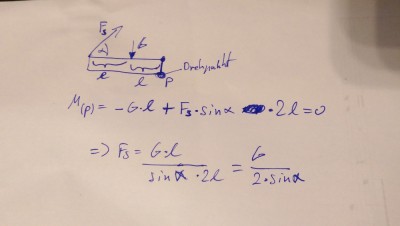 Fs
α
G
l
l
P
Drehpunkt
M(P) = -G·l + Fs·sinα ·2l=0
=> Fs = G·l / sinα·2l = G / 2·sinα